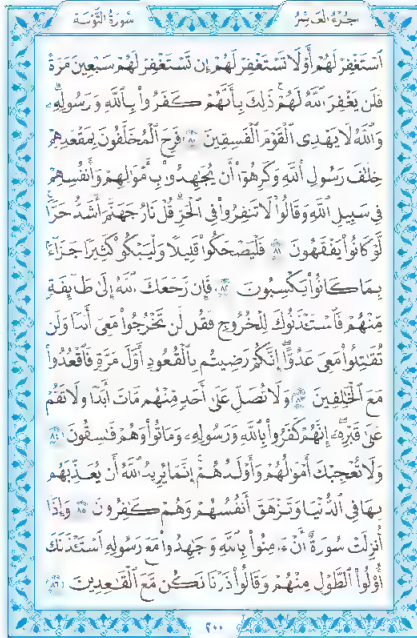 سُورَةُ التَّوْبَةِ
الجُزْءُ العَاشِرُ
ٱسْتَغْفِرْ لَهُمْ أَوْ لَا تَسْتَغْفِرْ لَهُمْ إِن تَسْتَغْفِرْ لَهُمْ سَبْعِينَ مَرَّةً
فَلَن يَغْفِرَ ٱللَّهُ لَهُمْ ۚ ذَٰلِكَ بِأَنَّهُمْ كَفَرُوا۟ بِٱللَّهِ وَرَسُولِهِۦ ۗ
وَٱللَّهُ لَا يَهْدِى ٱلْقَوْمَ ٱلْفَٰسِقِينَ ٨٠ فَرِحَ ٱلْمُخَلَّفُونَ بِمَقْعَدِهِمْ
خِلَٰفَ رَسُولِ ٱللَّهِ وَكَرِهُوٓا۟ أَن يُجَٰهِدُوا۟ بِأَمْوَٰلِهِمْ وَأَنفُسِهِمْ
فِى سَبِيلِ ٱللَّهِ وَقَالُوا۟ لَا تَنفِرُوا۟ فِى ٱلْحَرِّ ۗ قُلْ نَارُ جَهَنَّمَ أَشَدُّ حَرًّا ۚ
لَّوْ كَانُوا۟ يَفْقَهُونَ ٨١ فَلْيَضْحَكُوا۟ قَلِيلًا وَلْيَبْكُوا۟ كَثِيرًا جَزَآءًۢ
بِمَا كَانُوا۟ يَكْسِبُونَ ٨٢ فَإِن رَّجَعَكَ ٱللَّهُ إِلَىٰ طَآئِفَةٍ
مِّنْهُمْ فَٱسْتَـْٔذَنُوكَ لِلْخُرُوجِ فَقُل لَّن تَخْرُجُوا۟ مَعِىَ أَبَدًا وَلَن
تُقَٰتِلُوا۟ مَعِىَ عَدُوًّا ۖ إِنَّكُمْ رَضِيتُم بِٱلْقُعُودِ أَوَّلَ مَرَّةٍ فَٱقْعُدُوا۟
مَعَ ٱلْخَٰلِفِينَ ٨٣ وَلَا تُصَلِّ عَلَىٰٓ أَحَدٍ مِّنْهُم مَّاتَ أَبَدًا وَلَا تَقُمْ
عَلَىٰ قَبْرِهِۦٓ ۖ إِنَّهُمْ كَفَرُوا۟ بِٱللَّهِ وَرَسُولِهِۦ وَمَاتُوا۟ وَهُمْ فَٰسِقُونَ ٨٤
وَلَا تُعْجِبْكَ أَمْوَٰلُهُمْ وَأَوْلَٰدُهُمْ ۚ إِنَّمَا يُرِيدُ ٱللَّهُ أَن يُعَذِّبَهُم
بِهَا فِى ٱلدُّنْيَا وَتَزْهَقَ أَنفُسُهُمْ وَهُمْ كَٰفِرُونَ ٨٥ وَإِذَآ
أُنزِلَتْ سُورَةٌ أَنْ ءَامِنُوا۟ بِٱللَّهِ وَجَٰهِدُوا۟ مَعَ رَسُولِهِ ٱسْتَـْٔذَنَكَ
أُو۟لُوا۟ ٱلطَّوْلِ مِنْهُمْ وَقَالُوا۟ ذَرْنَا نَكُن مَّعَ ٱلْقَٰعِدِينَ ٨٦
٢٠٠